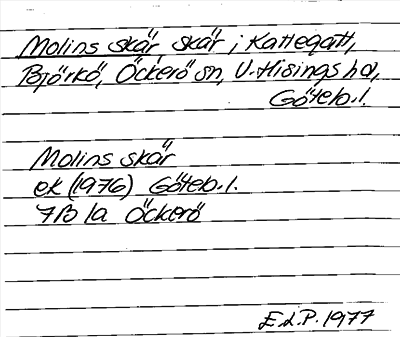 Molins skär skär i Kattegatt,
Björkö, Öckerö sn, V. Hisings hd,
Göteb. l.
Molins skär
ek (1976) Göteb. l.
7B 1a Öckerö
E.L.P. 1977